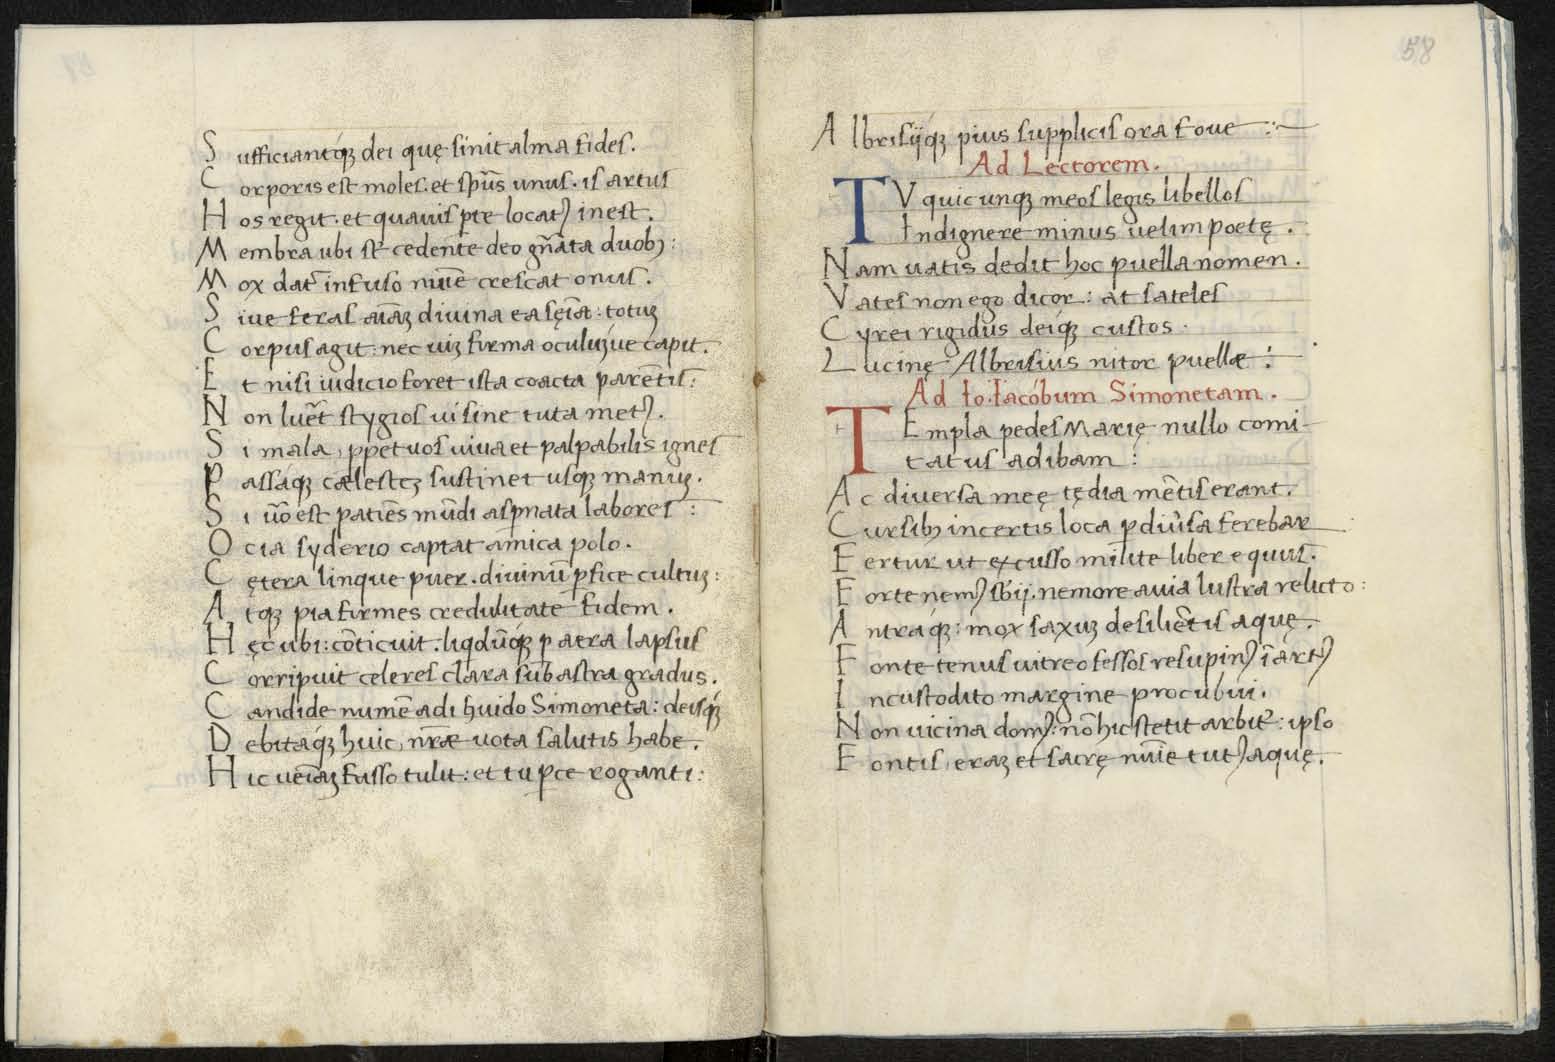 Sufficiantq́ꝫ dei quę sinit alma fides.
Corporis est moles. et sp̄us unus. is artus
Hos regit. et quamuis ꝑte locatꝰ inest.
Membra ubi st̄ cedente deo gn̄ata duobꝫ:
Mox dat̄ infuso nūie crescat onus.
Siue feras aīaꝫ diuina ea sęīa: totuꝫ
Corpus agit: nec uiꝫ firma oculusue capit.
Et nisi iudicio foret ista coacta parētis:
Non luēt stygios ui sine tuta metꝰ.
Si mala, ꝑpetuos uiua et palpabilis ignes
Passaq́ꝫ cælesteꝫ sustinet usqꝫ manuꝫ.
Si ūo est patiēs mūdi aspnata labores:
Ocia syderio captat amica polo.
Cętera linque puer. diuinū ꝑfice cultuꝫ:
Atqꝫ pia firmes credulitate fidem.
Hęc ubi: cōticuit. liqdūq́ꝫ ꝑ aera lapsus
Corripuit celeres clara sub astra gradus.
Candide numē adi huido Simoneta: deisq́ꝫ
Debitaq́ꝫ huic, nr̄æ uota salutis habe.
Hic ueīaꝫ fusso tulit: et tu ꝑce roganti:
58
Albrisijq́ꝫ pius supplicis ora foue:~
Ad Lectorem.
TV quicunqꝫ meos legis libellos
Indignere minus uelim poetę.
Nam uatis dedit hoc puella nomen.
Vates non ego dicor: at sateles
Cyrei rigidus deiq́ꝫ custos.
Lucinę Albrisius nitor puellæ:
Ad Io. Iacóbum Simonetam.
TEmpla pedes Marię nullo comi-
tatus adibam:
Ac diuersa meę tędia mētis erant.
Cursibꝫ incertis loca ꝑ diūsa ferebar
Fertur ut excusso milite liber equus.
Forte nemꝰ sbij. nemore auia lustra relicto:
Antraq́ꝫ: mox saxuꝫ desiliētis aquę.
Fonte tenus uitreo fessos resupinꝰ ī artꝰ
Incustodito margine procubui.
Non uicina domꝰ: nō hic stetit arbit̄: ipso
Fontis, eraꝫ et sacrę nūie tutꝰ aquę.